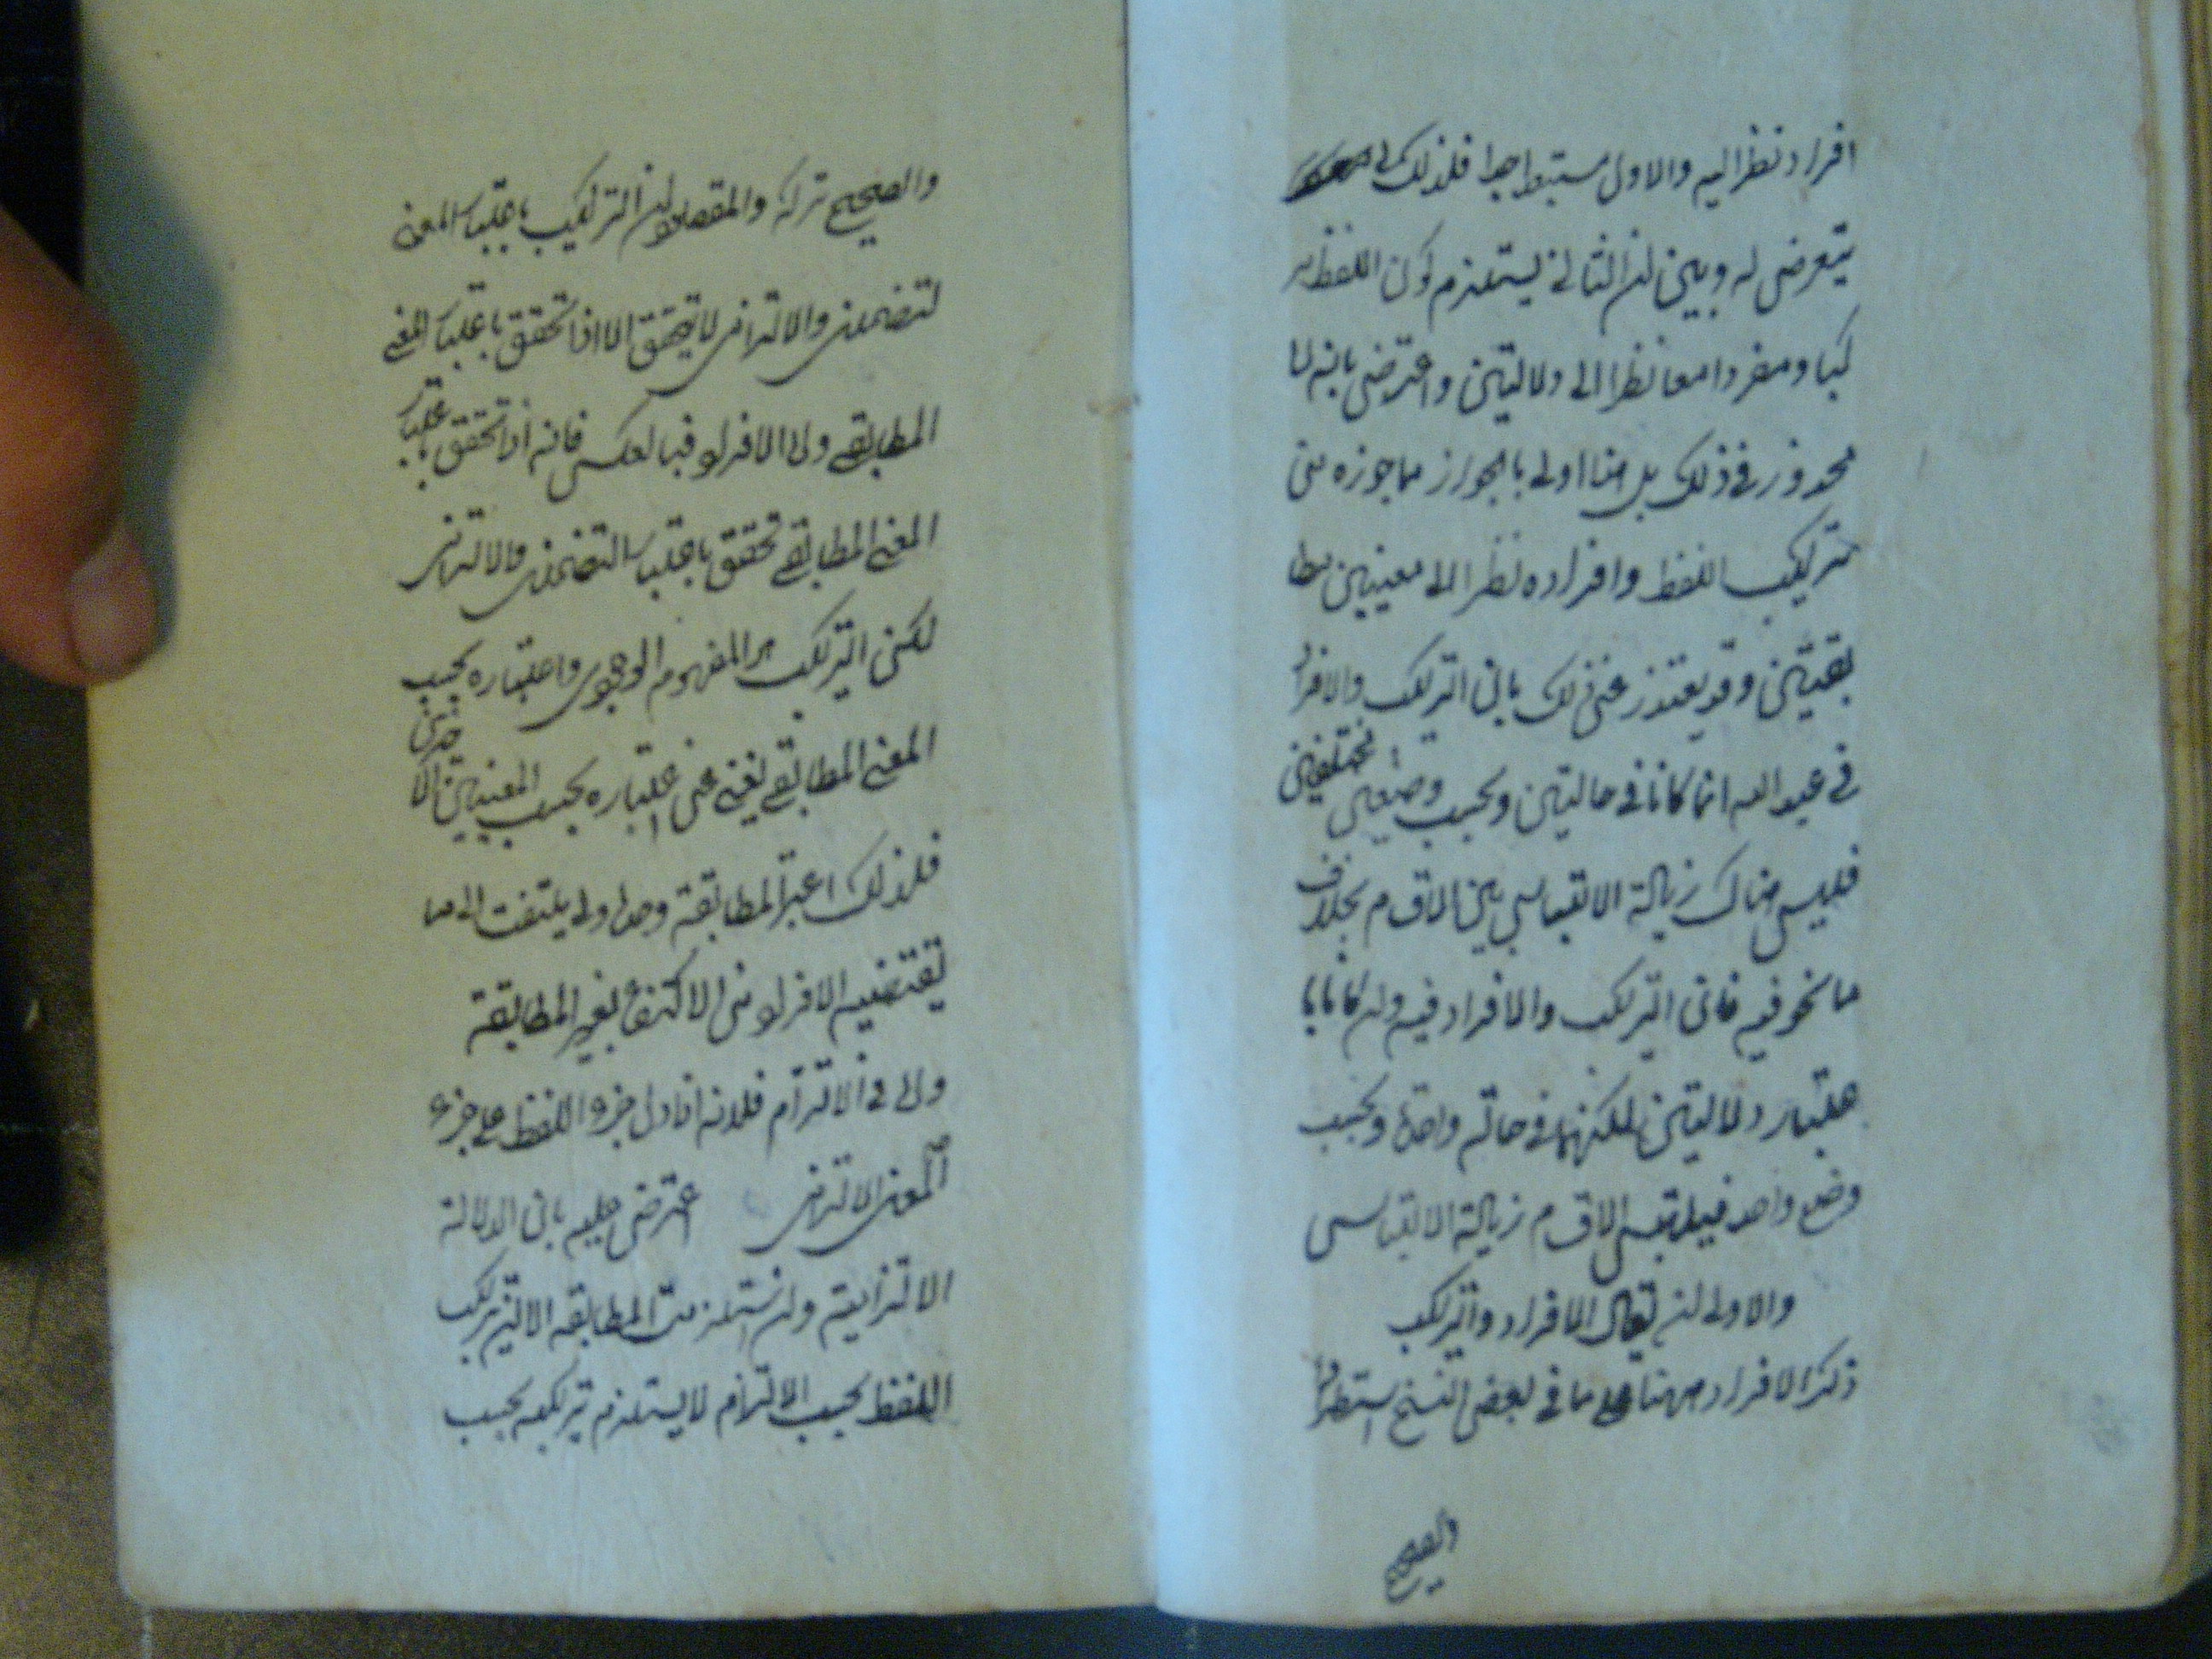 افراد نظرا اليه والاول مستبعد جدا فلذلك لم
يتعرض له وبين ان الثاني يستلزم كون اللفظ مر
كبا ومفردا معا نظرا الى دلالتين واعترض بانه لا
محذور في ذلك بل هذا اولى بالجواز مما جوزه من
تركيب اللفظ وافراده نظرا الى معنيين مطا
بقيين وقد يعتذر عن ذلك بان التركيب والافراد
في عبد الله انما كانا في حالتين وبحسب وضعين مختلفين
فليس هناك زيادة الالتباس بين الاقسام بخلاف
ما نحن فيه فان التركيب والافراد فيه وان كانا با
عتبار دلالتين لكنهما في حالة واحدة وبحسب
وضع واحد فيلتبس الاقسام زيادة الالتباس
والاولى ان يقال الافراد والتركيب
ذكر الافراد ههنا على ما في بعض النسخ استطرادا
والصحيح
والصحيح تركه والمقصود ان التركيب باعتبار المعنى
لتضمنى والالتزامى لا يتحقق الا اذا تحقق باعتبار المعنى
المطابقى واما الافراد فبالعكس فانه اذا تحقق باعتبار
المعنى المطابقى تحقق باعتبار التضمنى والالتزامى
لكن التركيب هو المفهوم الوجودى واعتباره بحسب
المعنى المطابقى يغنى عن اعتباره بحسب المعنيين الاخرين
فلذلك اعتبر المطابقة وحدها ولم يلتفت الى ما
يقتضيه الافراد من الاكتفاء بغير المطابقة
واما في الالتزام فلانه اذا دل جزء اللفظ على جزء
المعنى الالتزامى اعترض عليه بان الدلالة
الالتزامية وان استلزمت المطابقة الا ان تركيب
اللفظ بحسب الالتزام لا يستلزم تركيبه بحسب